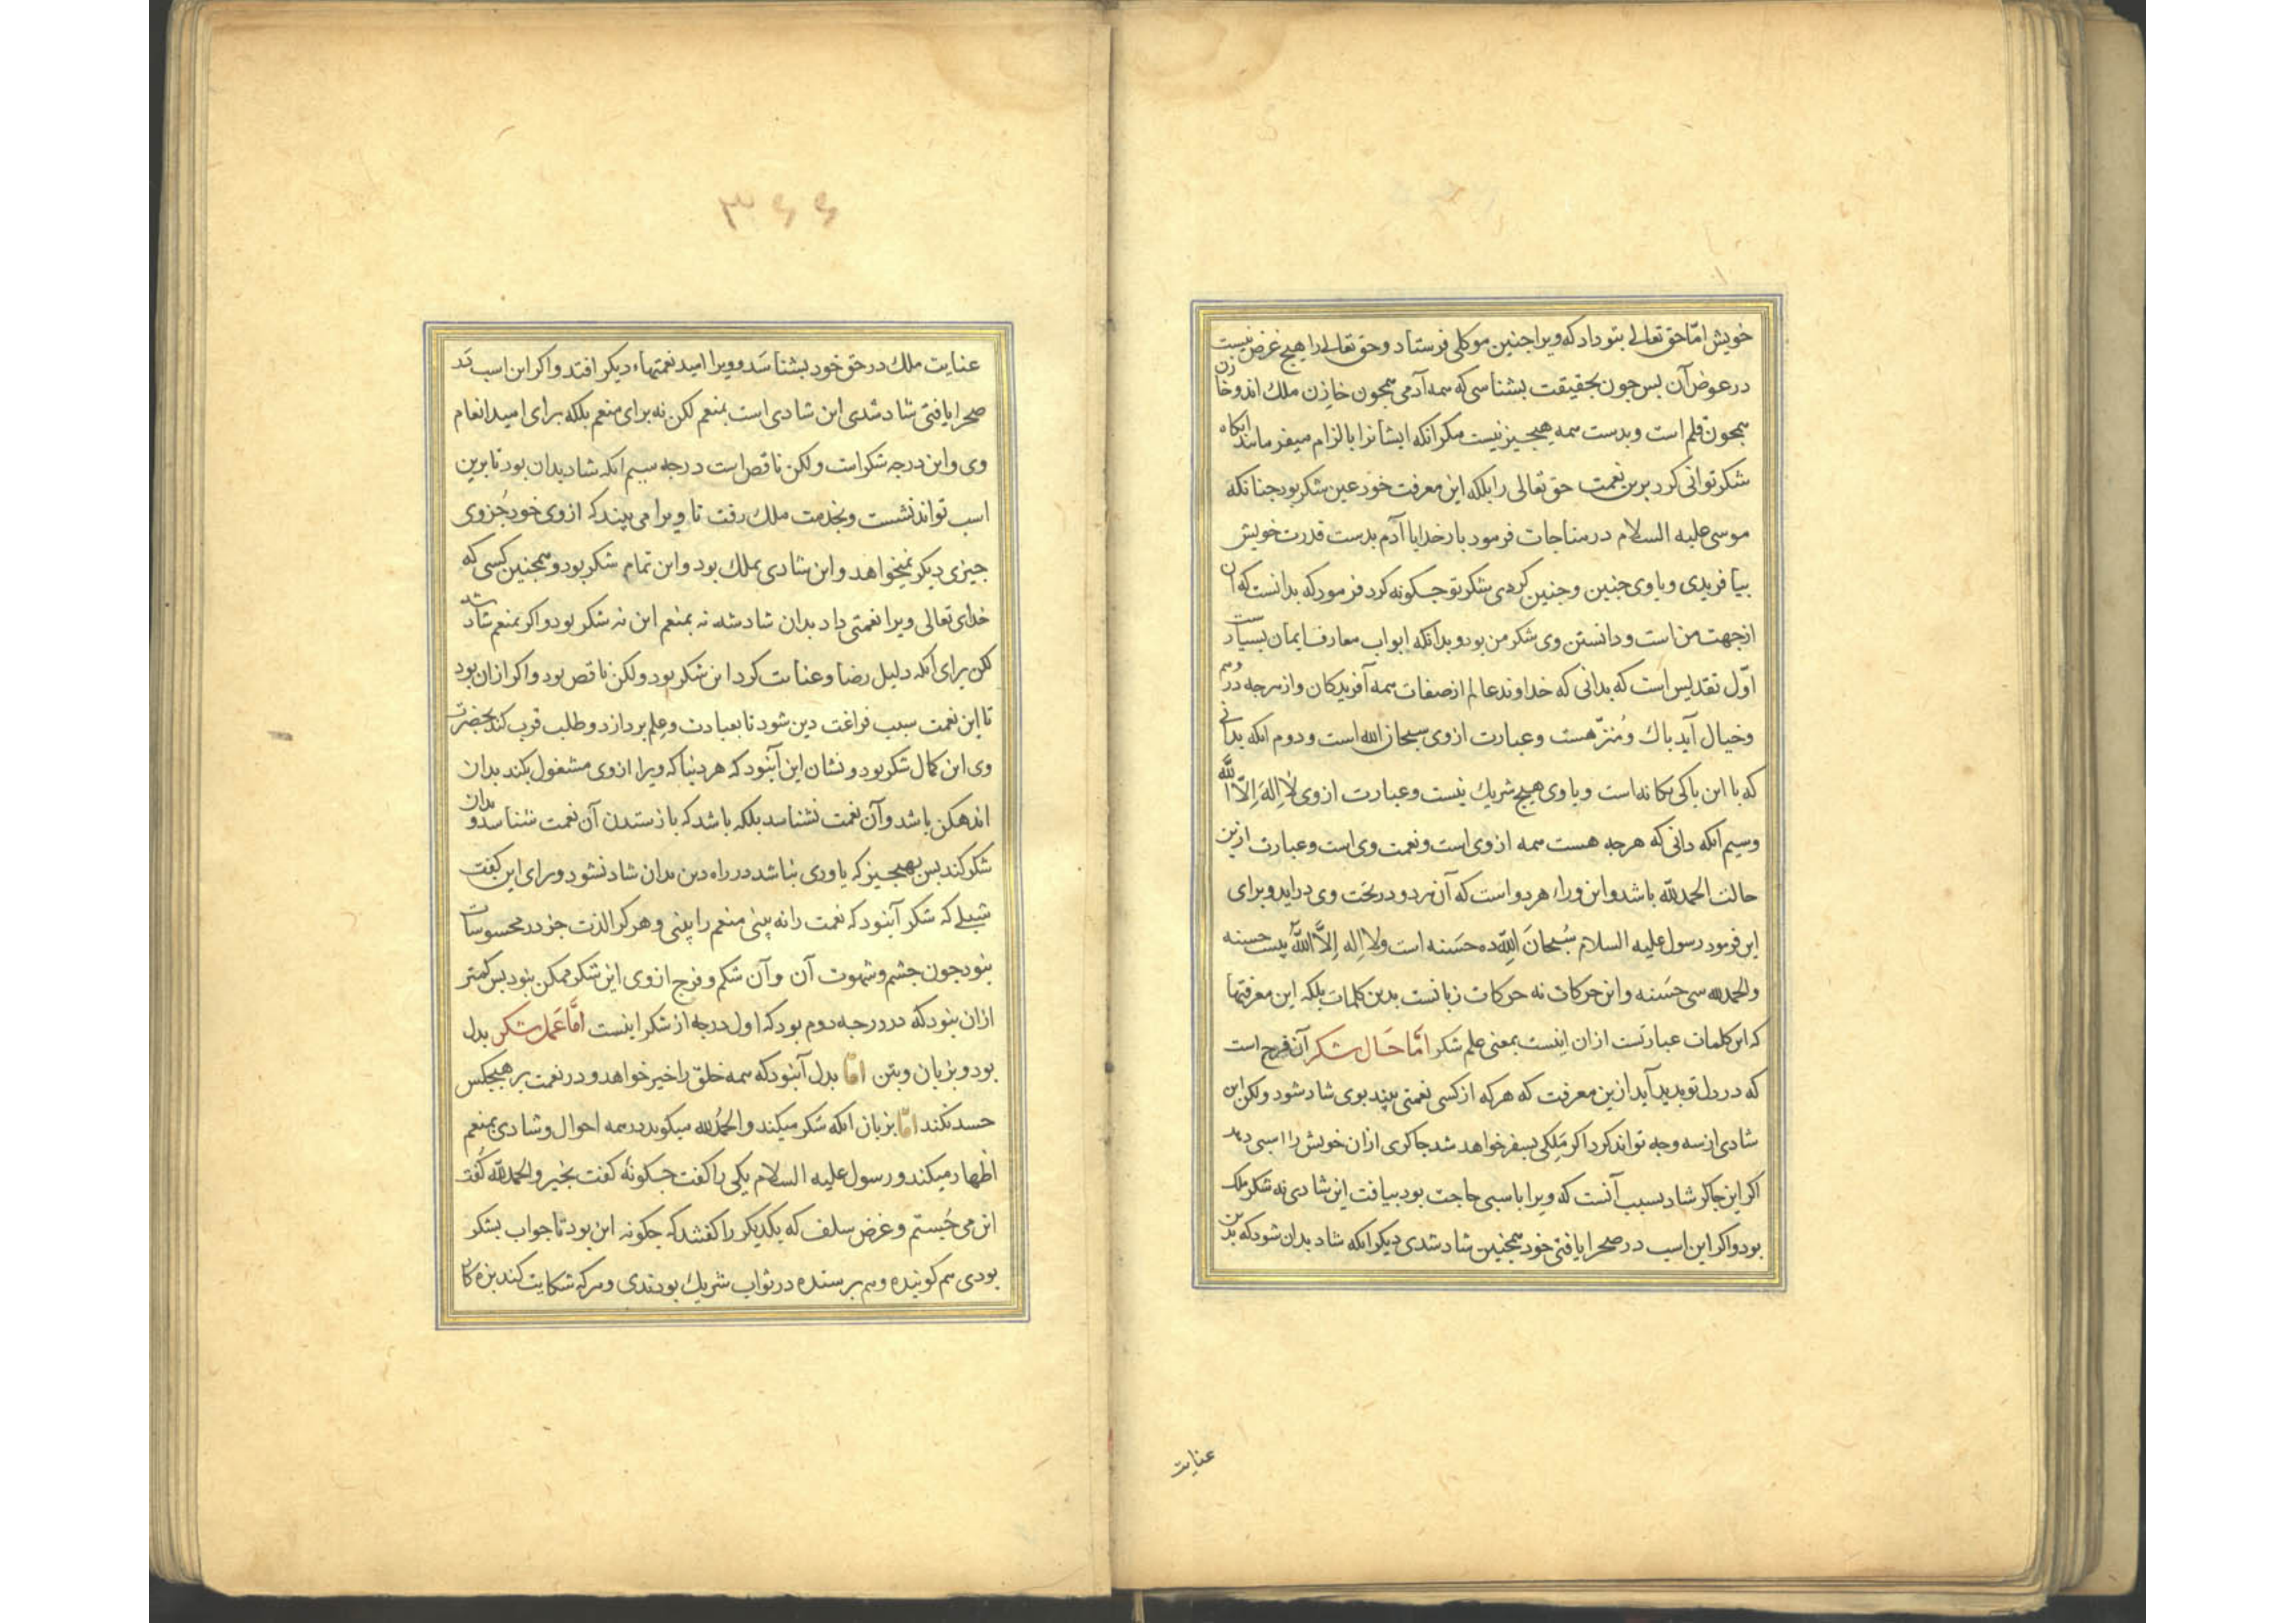 خویش امّا حق تعالی بتو داد که ویرا جنین موکلی فرستاد و حق تعالی را هیچ غرض نیست
در عوض آن بس جون بحقیقت بشناسی که همه آدمی همجون خازن ملک اند و خازن
همجون قلم است و بدست همه هیجیز نیست مکر انکه ایشانرا بالزام میفرمانید انکاه
شکر توانی کرد برین نعمت حق تعالی را بلکه این معرفت خود عین شکر بود جنانکه
موسی علیه السلام در مناجات فرمود بار خدایا آدم بدست قدرت خویش
بیافریدی و با وی جنین و جنین کردی شکر تو جکونه کرد فرمود که بدانست که آن
از جهت من است و دانستن وی شکر من بود و بدانکه ابواب معارف ایمان بسیارست
اوّل تقدیس است که بدانی که خداوند عالم از صفات همه آفریدکان و از هرجه در وهم
و خیال آید باک و مُنزّه هست و عبارت ازوی سبحان الله است و دوم انکه بدانی
که با این باکی یکانه است و با وی هیچ شریک نیست و عبارت ازوی لا اِلهَ اِلاّ الله
وسیم انکه دانی که هرجه هست همه ازوی است و نعمت وی است و عبارت ازین
حالت الحمدلله باشد و این وراء هر دو است که آن هر دو در تحت وی دراید و برای
این فرمود رسول علیه السلام سُبحانَ اللهِ ده حسَنه است ولا اِله اِلاَّ اللهُ بیست حسنه
والحمدلله سی حسَنه و این حرکات نه حرکات زبانست بدین کلمات بلکه این معرفتها
که این کلمات عبارتست ازان اینست بمعنی علم شکر امّا حَال شکر آن فرح است
که در دل تو بدید آید ازین معرفت که هرکه از کسی نعمتی بیند بوی شاد شود ولکن این
شادی از سه وجه تواند کرد اکر مَلِکی بسفر خواهد شد جاکری ازان خویش را اسبی دهد
اکر این جاکر شاد بسبب آنست که ویرا باسبی حاجت بود بیافت این شادی نه شکر ملک
بود و اکر این اسب در صحرا یافتی خود همجنین شاد شدی دیکر انکه شاد بدان شود که بدین
عنایت
۳۶۶
عنایت ملک در حق خود بشناسَد و ویرا امید نعمتهاء دیکر افتد و اکر این اسب در
صحرا یافتی شاد شدی این شادی است بمنعم لکن نه برای منعم بلکه برای امید انعام
وی و این درجه شکر است ولکن ناقص است درجه سیم انکه شاد بدان بود تا برین
اسب تواند نشست و بخدمت ملک رفت تا ویرا می بیند که ازوی خود جُزوی
جیزی دیکر نمیخواهد و این شادی بملک بود و این تمام شکر بود و همجنین کسی که
خدای تعالی ویرا نعمتی داد بدان شاد شد نه بمنعم این نه شکر بود و اکر بمنعم شاد شد
لکن برای آنکه دلیل رضا و عنایت کرد این شکر بود ولکن ناقص بود و اکر ازان بود
تا این نعمت سبب فراغت دین شود تا بعبادت و علم بردازد و طلب قرب کند بحضرت
وی این کمال شکر بود و نشان این آنبود که هر دنیا که ویرا ازوی مشغول بکند بدان
اندهکن باشد و آن نعمت نشناسد بلکه باشد که باز ستدن آن نعمت شناسد و بدان
شکر کند بس بهیجیز که یاوری نباشد در راه دین بدان شاد نشود و رای این کفت
شبلی که شکر آنبود که نعمت را نه بینی منعم را بینی و هر کرا لذت جز در محسوسات
بنود جون جشم و شهوت آن و آن شکم و فرج ازوی این شکر ممکن بنود بس کمتر
ازان بنود که در درجه دوم بود که اول درجه از شکر اینست امَّا عَمل شکر بدل
بود و بزبان و بتن امّا بدل آنبود که همه خلق را خیر خواهد و در نعمت بر هیجکس
حسد نکند امّا بزبان انکه شکر میکند و الحمدُلله میکوید در همه احوال و شادی بمنعم
اظهار میکند و رسول علیه السلام یکی را کفت جکونه کفت بخیر و الحمدلله کُفت
این می جُستم و غرض سلف که یکدیکر را کفتند که جکونه این بود تا جواب بشکر
بودی هم کوینده و هم برسنده در ثواب شریک بودندی و هرکه شکایت کند بزه کار